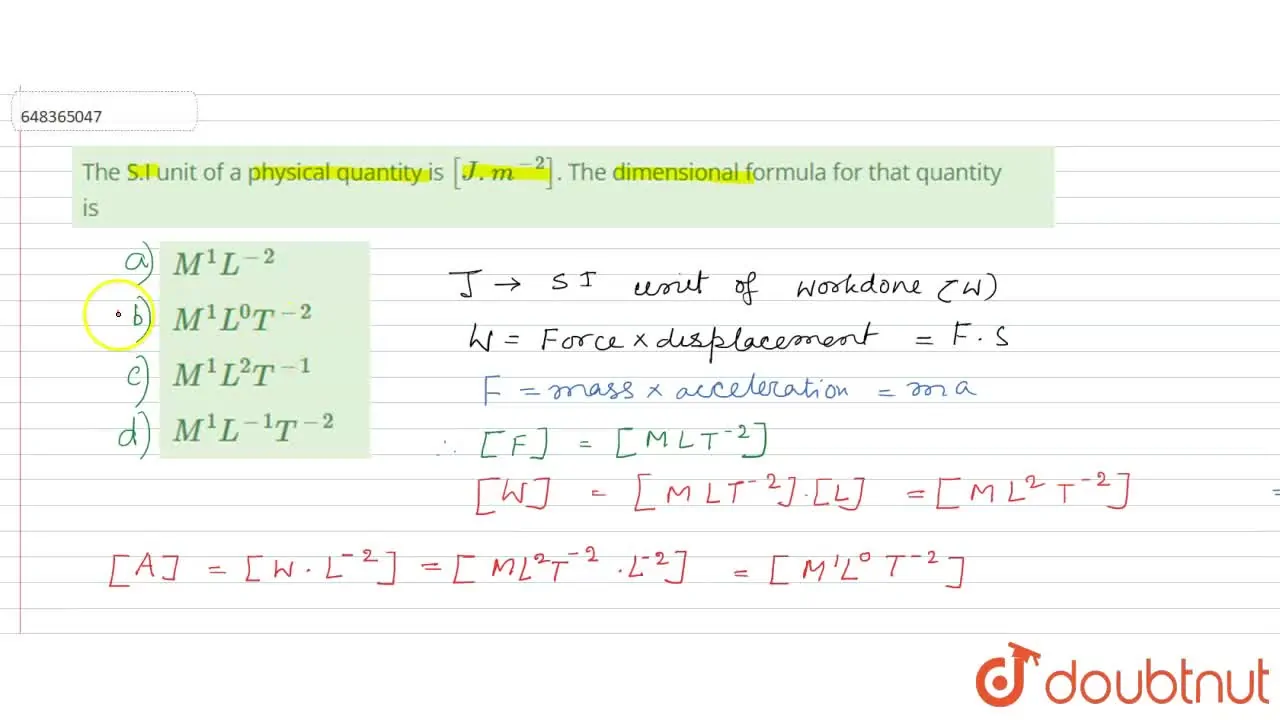 648365047
The S.I unit of a physical quantity is [J. m⁻²]. The dimensional formula for that quantity
is
a) M¹L⁻²
b) M¹L⁰T⁻²
c) M¹L²T⁻¹
d) M¹L⁻¹T⁻²
J → SI unit of workdone (W)
W = Force × displacement = F. S
F = mass × acceleration = ma
∴ [F] = [MLT⁻²]
[W] = [MLT⁻²].[L] = [ML²T⁻²] =
[A] = [W. L⁻²] = [ML²T⁻² . L⁻²] = [M¹L⁰T⁻²]
doubtnut